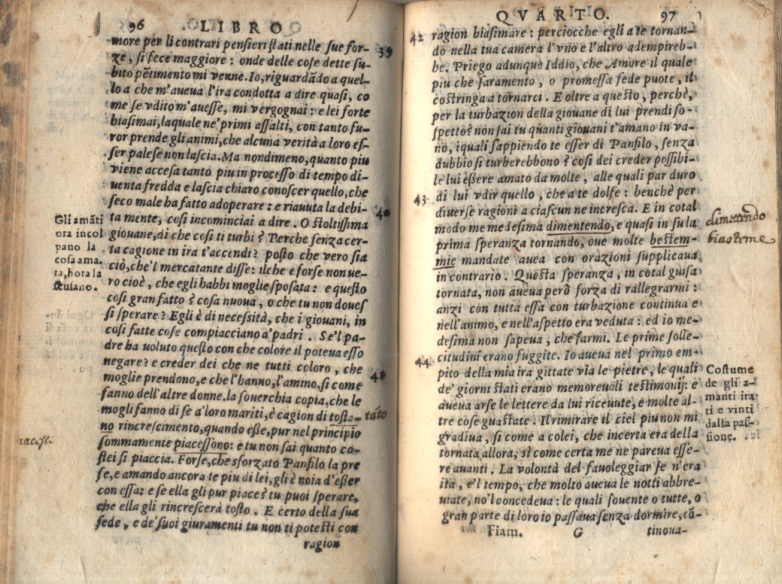 96 LIBRO
more per li contrari pensieri stati nelle sue for-
ze, si fece maggiore: onde delle cose dette su-
bito pētimento mi venne. Io, riguardādo a quel-
lo a che m'aueua l'ira condotta a dire quasi, co
me se vdito m'auesse, mi vergognai: e lei forte
biasimai, laquale ne' primi assalti, con tanto fu-
ror prende gli animi, che alcuna verità a loro es-
ser palese non lascia. Ma nondimeno, quanto piu
viene accesa tanto piu in processo di tempo di-
uenta fredda e lascia chiaro conoscer quello, che
seco male ha fatto adoperare: e riauuta la debi-
ta mente, cosi incominciai a dire. O stoltissima
giouane, di che cosi ti turbi? Perche senza cer-
ta cagione in ira t'accendi? posto che vero sia
ciò, che'l mercatante disse: ilche e forse non ue-
ro cioè, che egli habbi moglie sposata: e questo
cosi gran fatto? cosa nuoua, o che tu non douessi
si sperare? Egli è di necessità, che i giouani, in
cosi fatte cose compiacciano a' padri. Se'l pa-
dre ha voluto questo con che colore il poteua esso
negare? e creder dei che ne tutti coloro, che
moglie prendono, e che l'hanno, l'ammo, si come
fanno dell'altre donne. la souerchia copia, che le
mogli fanno di se a'loro mariti, è cagion di tosta-
no rincrescimento, quando esse, pur nel principio
sommamente piacessono: e tu non sai quanto co-
stei si piaccia. Forse, che sforzato Panfilo la pre
se, e amando ancora te piu di lei, gli è noia d'esser
con essa: e se ella gli pur piace? tu puoi sperare,
che ella gli rincrescerà tosto. E certo della sua
fede, e de' suoi giuramenti tu non ti potesti con
ragion
39
40
41
Gli amāti
ora incol
pano la
cosa ama-
ta, hora la
scusano.
tato
QVARTO. 97
ragion biasimare: perciocche egli a te tornan-
do nella tua camera l'vno e l'altro adempireb-
be. Priego adunque Iddio, che Amore il quale
piu che saramento, o promessa fede puote, il
costringa a tornarci. E oltre a questo, perchè,
per la turbazion della giouane di lui prendi so-
spetto? non sai tu quanti giouani t'amano in va-
no, iquali sappiendo te esser di Panfilo, senza
dubbio si turberebbono? cosi dei creder possibi-
le lui essere amato da molte, alle quali par duro
di lui vdir quello, che a te dolse: benchè per
diuerse ragioni a ciascun ne incresca. E in cotal
modo me medesima dimentendo, e quasi in su la
prima speranza tornando, oue molte bestem-
mie mandate auea con orazioni supplicaua
in contrario. Questa speranza, in cotal guisa
tornata, non aueua però forza di rallegrarmi:
anzi con tutta essa con turbazione continua e
nell'animo, e nell'aspetto era veduta: ed io me-
desima non sapeua, che farmi. Le prime solle-
citudini erano fuggite. Io aueua nel primo em-
pito della mia ira gittate via le pietre, le quali
de' giorni stati erano memoreuoli testimonij: e
aueua arse le lettere da lui riceuute, e molte al-
tre cose guastate. Il rimirare il ciel piu non mi
gradiua, si come a colei, che incerta era della
tornata allora, si come certa me ne pareua esse-
re auanti. La volontà del fauoleggiar se n'era
ita, e'l tempo, che molto aueua le notti abbre-
uiate, no'l concedeua: le quali souente o tutte, o
gran parte di loro io passaua senza dormire, cō-
Fiam. G tinoua-
42
43
44
dimettendo
biasteme
Costume
de gli a-
manti ira-
ti e vinti
dalla pas-
sione.